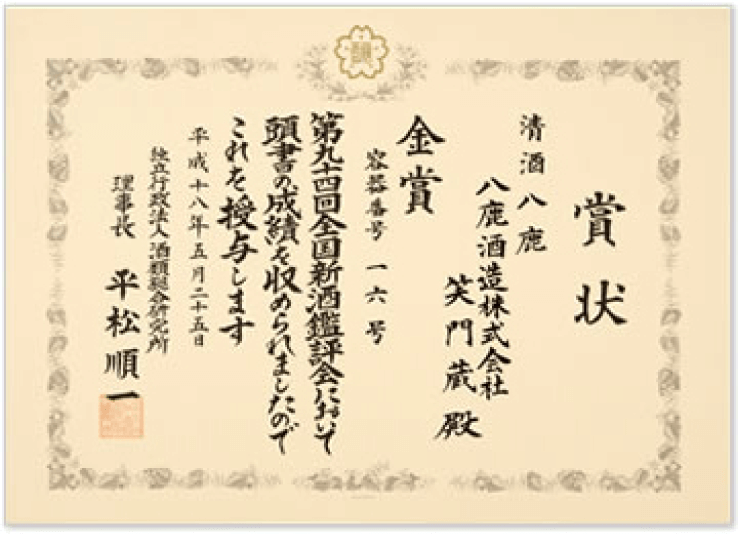 賞状
清酒八鹿
八鹿酒造株式会社
笑門蔵殿
金賞
容器番号 一六号
第九十四回全国新酒鑑評会において
頭書の成績を収められましたので
これを授与します
平成十八年五月二十五日
独立行政法人酒類総合研究所
理事長 平松順一